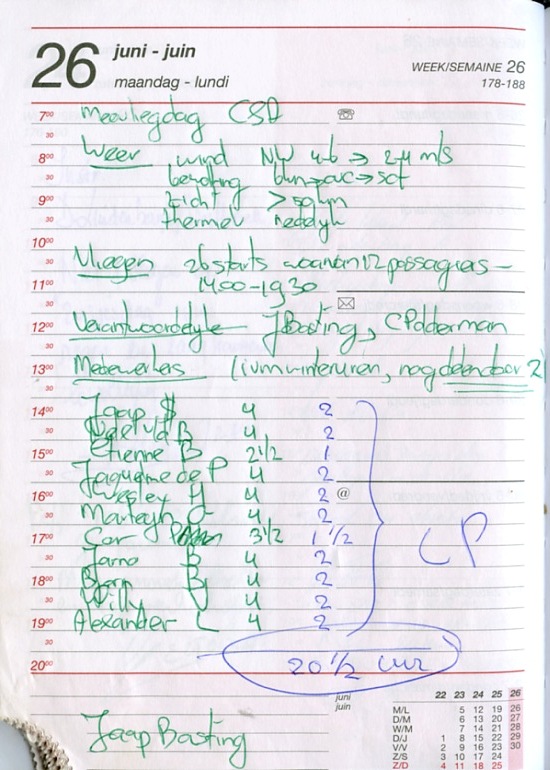 26 juni - juin
maandag - lundi
WEEK/SEMAINE 26
178-188
7⁰⁰ Meevliegdag CSA
30
8⁰⁰ Weer wind NW 4-6 → 2-4 m/s
30 bewolking →ovc→sct
9⁰⁰ zicht > 50 km
30 thermiek redelijk
10⁰⁰
30 Vliegen 26 starts waarvan 12 passagiers -
11⁰⁰ 14.00-19.30
30
12⁰⁰ Verantwoordelijke J Basting, C Polderman
30
13⁰⁰ Medewerkers (ivm winteruren, nog delen door 2)
30
14⁰⁰ Jaap 4 2
30 B 4 2
15⁰⁰ Etienne B 2 1/2 1
30 Jaqueline de P 4 2
16⁰⁰ Wesley H 4 2 @
30 Marteyn J 4 2
17⁰⁰ Cor 3 1/2 1 1/2
30 Jarno B 4 2
18⁰⁰ Bjorn B 4 2
30 Willy V 4 2
19⁰⁰ Alexander L 4 2
CP
30
20⁰⁰ 20 1/2 uur
Jaap Basting
juni
juin
22 23 24 25 26
M/L 5 12 19 26
D/M 6 13 20 27
W/M 7 14 21 28
D/J 1 8 15 22 29
V/V 2 9 16 23 30
Z/S 3 10 17 24
Z/D 4 11 18 25